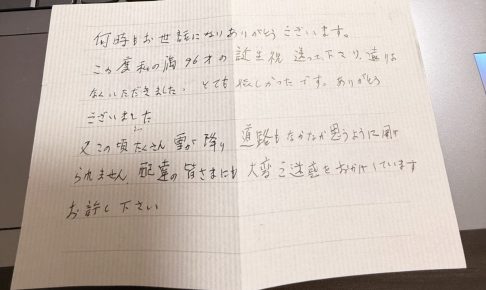 何時もお世話になりありがとうございます。
この度私の満96才の誕生祝 送って下さり、遠りょ
なくいただきました、とても嬉しかったです。ありがとう
ございました
又この頃たくさん雪が降り 道路もなかなか思うように開け
られません、配達の皆さまにも 大変ご迷惑をおかけしています
お許し下さい